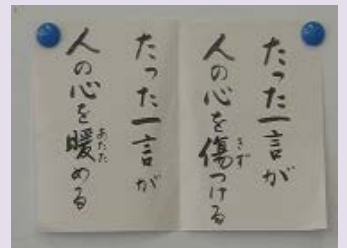 たった一言が
人の心を傷つける
たった一言が
人の心を暖める